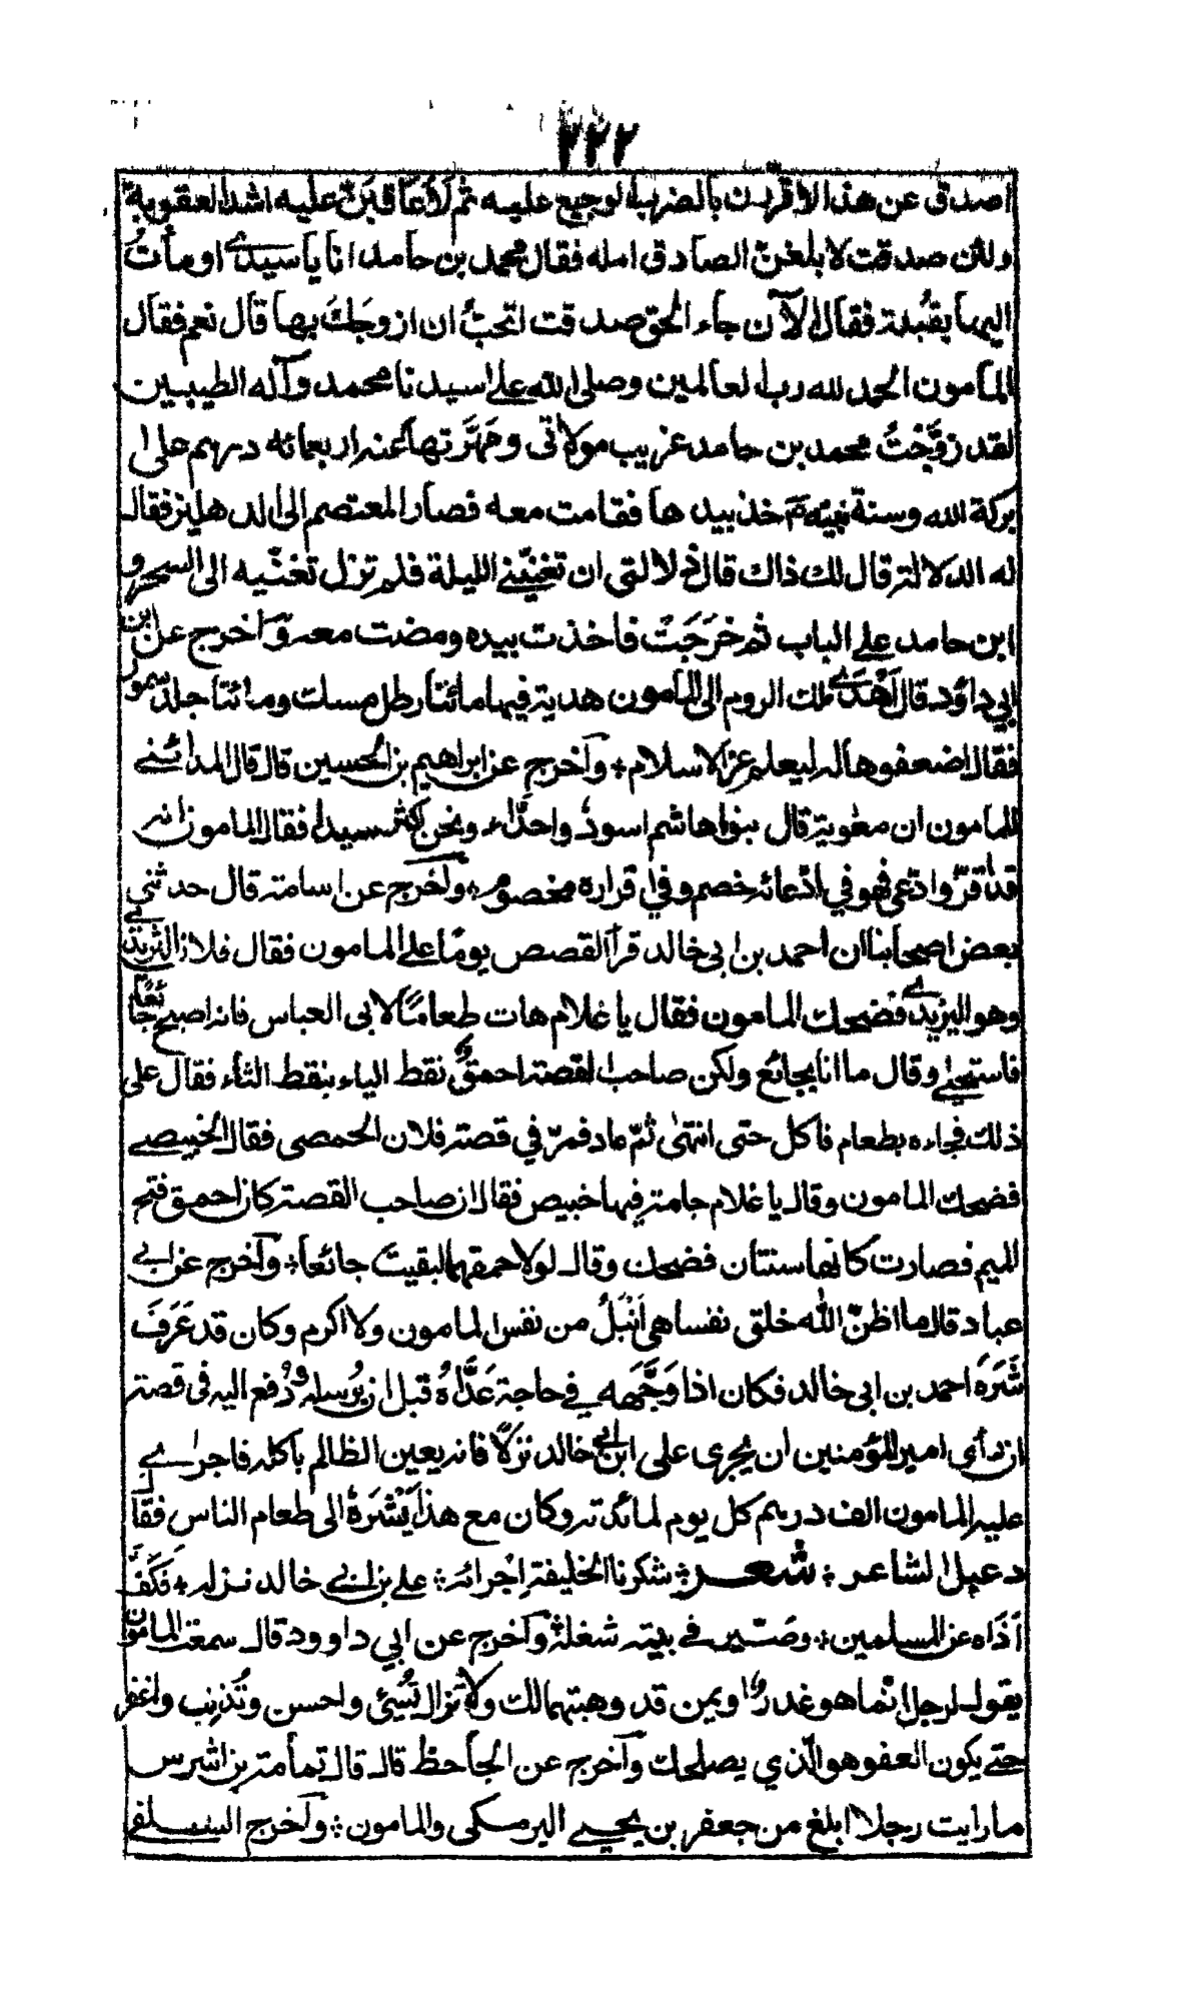 ٢٢٢
اصدق عن هذا لاقربن بالضرب الوجيع عليه ثم لاُعَاقبَنّ عليه اشد العقوبة
ولئن صدقت لابلغنّ الصادق امله فقال محمد بن حامد انا يا سيدي اومأتُ
اليها بقُبلة فقال الآن جاء الحق صدقت اتحبُّ ان ازوجَكَ بها قال نعم فقال
المأمون الحمد لله رب العالمين وصلى الله على سيدنا محمد وآله الطيبين
لقد زوَّجْتُ محمد بن حامد عريب مولاتى ومَهَرَّتها عنه اربعمائه درهم على
بركة الله وسنة نبيّه خذ بيدها فقامت معه فصار المعتصم الى الدهليز فقال
له الدلالة قال لك ذاك قال دلالتى ان تغنّيني الليلة فلم تزل تغنّيه الى السحر و
ابن حامد على الباب ثم خَرَجَتْ فاخذت بيده ومضت معه وآخرج عن ابن
ابي داؤد قال اَهْدَى ملك الروم الى المأمون هدية فيها مائتا رطل مسك ومائتا جلد سمور
فقال اضعفوها له ليعلم عز الاسلام ؞ وآخرج عن ابراهيم بن الحسين قال قال المدائني
للمامون ان معوية قال بنو هاشم اسود واحدّاء ونحن اكثر سيدا فقال المامون انه
قد اقرّ وادّعى فهو في ادّعائه خصم وفي اقراره مخصوم ؞ وآخرج عن اسامة قال حدثني
بعض اصحابنا ان احمد بن ابي خالد قرأ القصص يومًا على المامون فقال فلان الثريدي
وهو اليزيدي فضحك المامون فقال يا غلام هات طعامًا لابى العباس فانه اصبح جائعًا
فاستحيى وقال ما انا بجائع ولكن صاحب القصة احمقُ نقط الياء بنقط الثاء فقال على
ذلك فجاءه بطعام فاكل حتى انتهىٰ ثمّ عاد فمرّ في قصة فلان الحمصى فقال الخبيصي
فضحك المامون وقال يا غلام جامة فيها خبيص فقال ان صاحب القصة كان احمق فتح
الميم فصارت كانها سنتان فضحك وقال لولا حمقهما لبقيتَ جائعا ؞ وآخرج عن ابي
عباد قال ما اظنّ الله خلق نفسا هي اَنْبَلُ من نفس المامون ولا اكرم وكان قد عَرَفَ
شَرَهَ احمد بن ابى خالد فكان اذا وَجَّهه في حاجة غَدَّاهُ قبل ان يُرسله ورُفع اليه فى قصة
ان رأى امير المؤمنين ان يُجرى على ابن ابي خالد نزلًا فانه يعين الظالم باكله فاجرى
عليه المامون الف درهم كل يوم لمائدته وكان مع هذا يَشْرَهُ الى طعام الناس فقال
دعبل الشاعر ؞ شعر ؞ شكرنا الخليفة اِجْرائه ؞ على بن ابي خالد نزله ؞ فكَفَّ
اَذَاه عن المسلمين ؞ وصَيّر في بيته شغله ؞ وآخرج عن ابي داوود قال سمعت المامون
يقول لرجل انما هو غدر او يمن قد وهبتهما لك ولا تزال تُسِئ واحسن وتُذنِب واغفر
حتى يكون العفو هو الّذي يصلحك وآخرج عن الجاحظ قال قال ثمامة بن اشرس
ما رايت رجلا ابلغ من جعفر بن يحيي البرمكى والمامون ؞ وآخرج السلفي